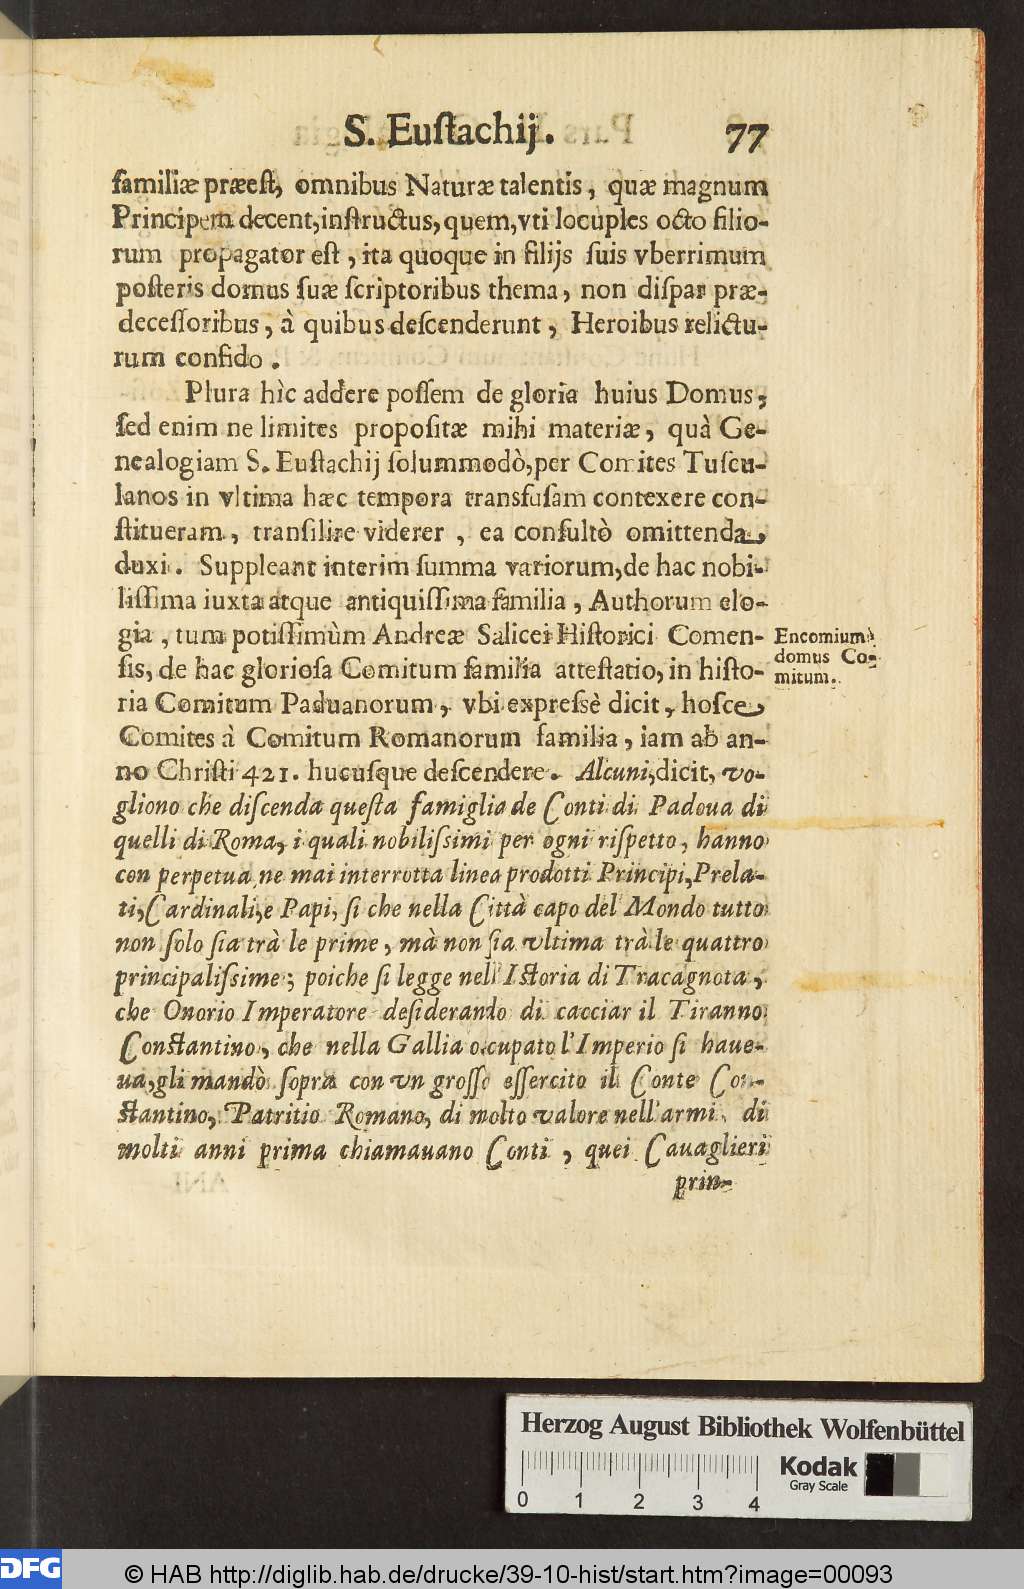 S. Euſtachij. 77
familiæ præeſt, omnibus Naturæ talentis, quæ magnum
Principem decent, inſtructus, quem, vti locuples octo filio-
rum propagator eſt, ita quoque in filijs ſuis vberrimum
poſteris domus ſuæ ſcriptoribus thema, non diſpar præ-
deceſſoribus, à quibus deſcenderunt, Heroibus relictu-
rum confido.
Plura hìc addere poſſem de gloria huius Domus,
ſed enim ne limites propoſitæ mihi materiæ, quà Ge-
nealogiam S. Euſtachij ſolummodò, per Comites Tuſcu-
lanos in vltima hæc tempora transfuſam contexere con-
ſtitueram, tranſilire viderer, ea conſultò omittenda
duxi. Suppleant interim ſumma variorum, de hac nobi-
liſſima iuxta atque antiquiſſima familia, Authorum elo-
gia, tum potiſſimùm Andreæ Salicei Hiſtorici Comen-
ſis, de hac glorioſa Comitum familia atteſtatio, in hiſto-
ria Comitum Paduanorum, vbi expreſsè dicit, hoſce
Comites à Comitum Romanorum familia, iam ab an-
no Chriſti 421. hucuſque deſcendere. Alcuni, dicit, vo-
gliono che diſcenda queſta famiglia de Conti di Padoua di
quelli di Roma, i quali nobiliſsimi per ogni riſpetto, hanno
con perpetua, ne mai interrotta linea prodotti Principi, Prela-
ti, Cardinali, e Papi, ſi che nella Città capo del Mondo tutto
non ſolo ſia trà le prime, mà non ſia vltima trà le quattro
principaliſsime; poiche ſi legge nell'Iſtoria di Tracagnota,
che Onorio Imperatore deſiderando di cacciar il Tiranno
Conſtantino, che nella Gallia occupato l'Imperio ſi haue-
ua, gli mandò ſopra con vn groſſo eſſercito il Conte Con-
ſtantino, Patritio Romano, di molto valore nell'armi. di
molti anni prima chiamauano Conti, quei Cauaglieri
prin-
Encomium
domus Co-
mitum.
Herzog August Bibliothek Wolfenbüttel
Kodak
Gray Scale
0 1 2 3 4
DFG © HAB http://diglib.hab.de/drucke/39-10-hist/start.htm?image=00093